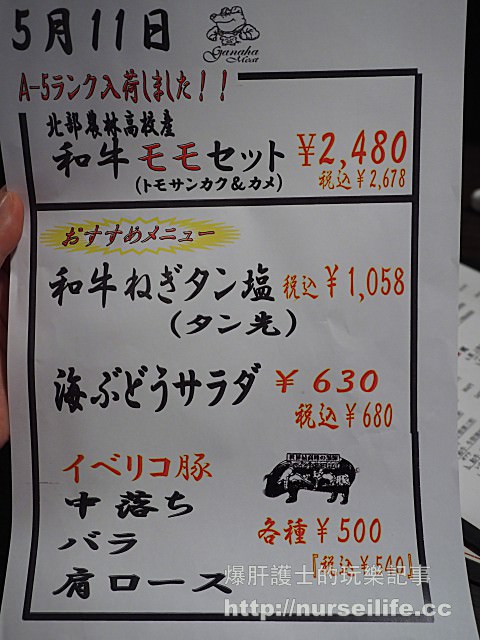 5月11日
Ganaha
Meat
A-5ランク入荷しました！！
北部農林高校産
和牛モモセット ￥2,480
(トモサンカク＆カメ) 税込￥2,678
おすすめメニュー
和牛ねぎタン塩 税込￥1,058
(タン先)
海ぶどうサラダ ￥630
税込￥680
イベリコ豚
中落ち
バラ 各種￥500
『税込￥540』
肩ロース
爆肝護士的玩樂記事
http://nurseilife.cc